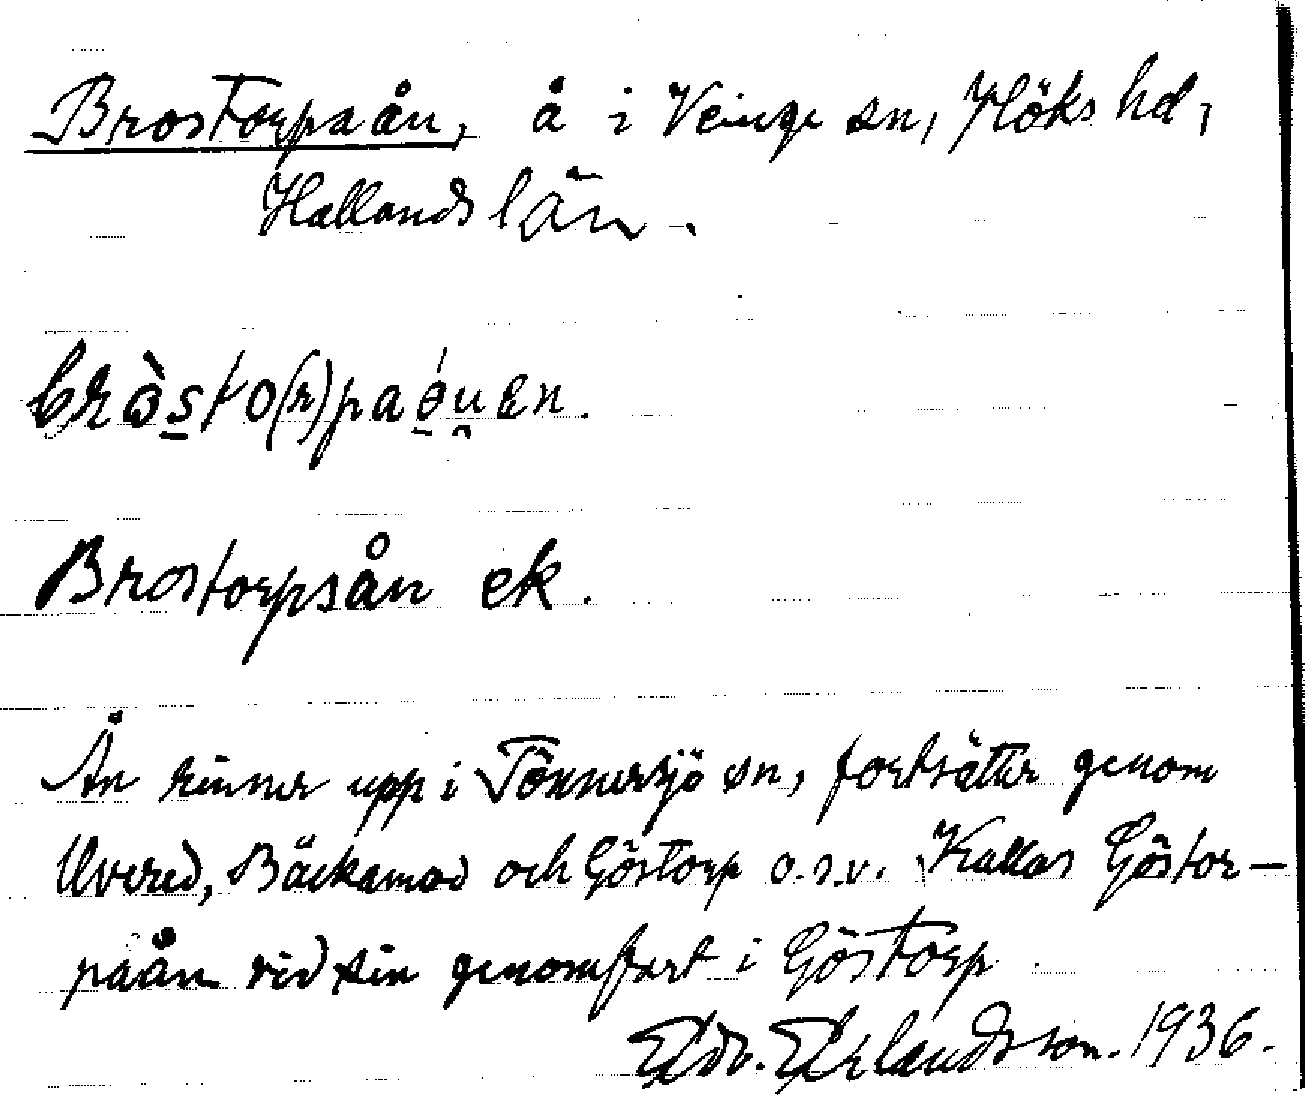 Brostorpaån, å i Veinge sn, Höks hd,
Hallands län.
bròsto(r)paéu̯en.
Brostorpsån ek.
Ån rinner upp i Tönnersjö sn, fortsätter genom
Uvered, Bäckamad och Göstorp o.s.v. Kallas Göstor-
paån vid sin genomfart i Göstorp
Edv. Erlandsson. 1936.